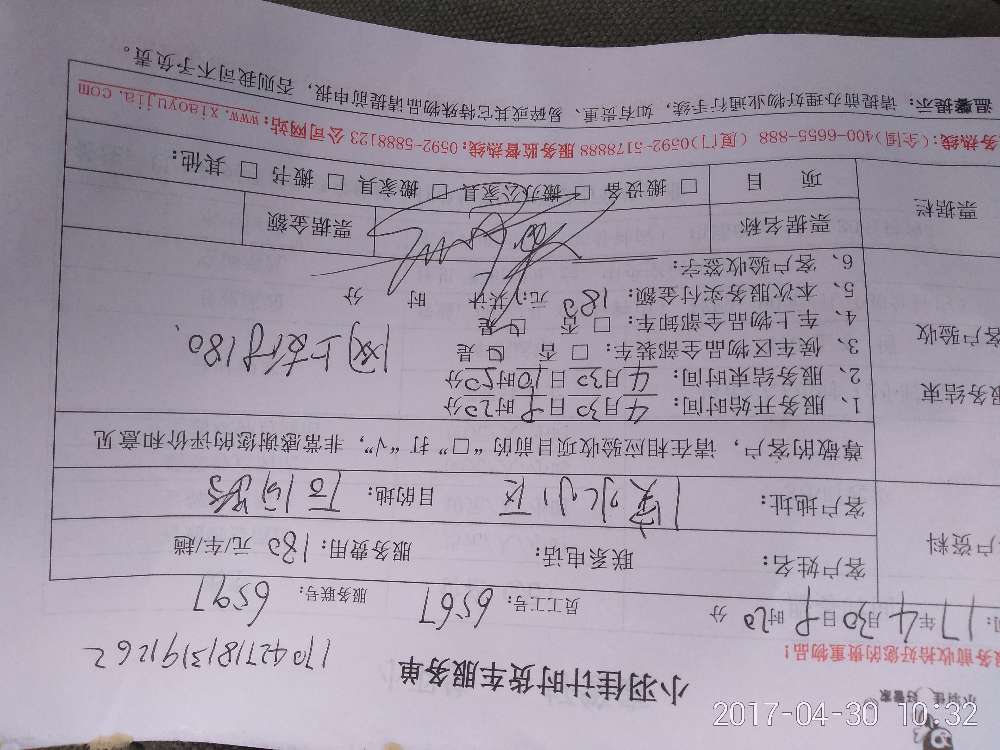 小羽佳 好管家
小羽佳计时货车服务单
170427181319126 2
服务前收拾好您的贵重物品！
17年4月30日 8时20分 员工工号：6567 服务联号：6597
客户资料
客户姓名： 联系电话： 服务费用：180 元/车/趟
客户地址： 小区 目的地：
尊敬的客户，请在相应验收项目前的“□”打“√”，非常感谢您的评价和意见
服务结束
客户验收
1、服务开始时间：4月30日8时20分
2、服务结束时间：4月30日10时20分
3、候车区物品全部装车：□ 否 □ 是
4、车上物品全部卸车：□ 否 □ 是
网上支付180、
5、本次服务实付金额：180 元，共计 时 分
6、客户验收签字：
票据栏
票据名称 票据金额
项 目 □ 搬设备 □ 搬办公家具 □ 搬家具 □ 搬书 □ 其他：
务热线：(全国)400-6655-888 (厦门)0592-5178888 服务监督热线：0592-5888123 公司网站：www.xiaoyujia.com
温馨提示：请提前办理好物业通行手续，如有贵重、易碎或其它特殊物品请提前申报，否则我司不予负责。
2017-04-30 10:32